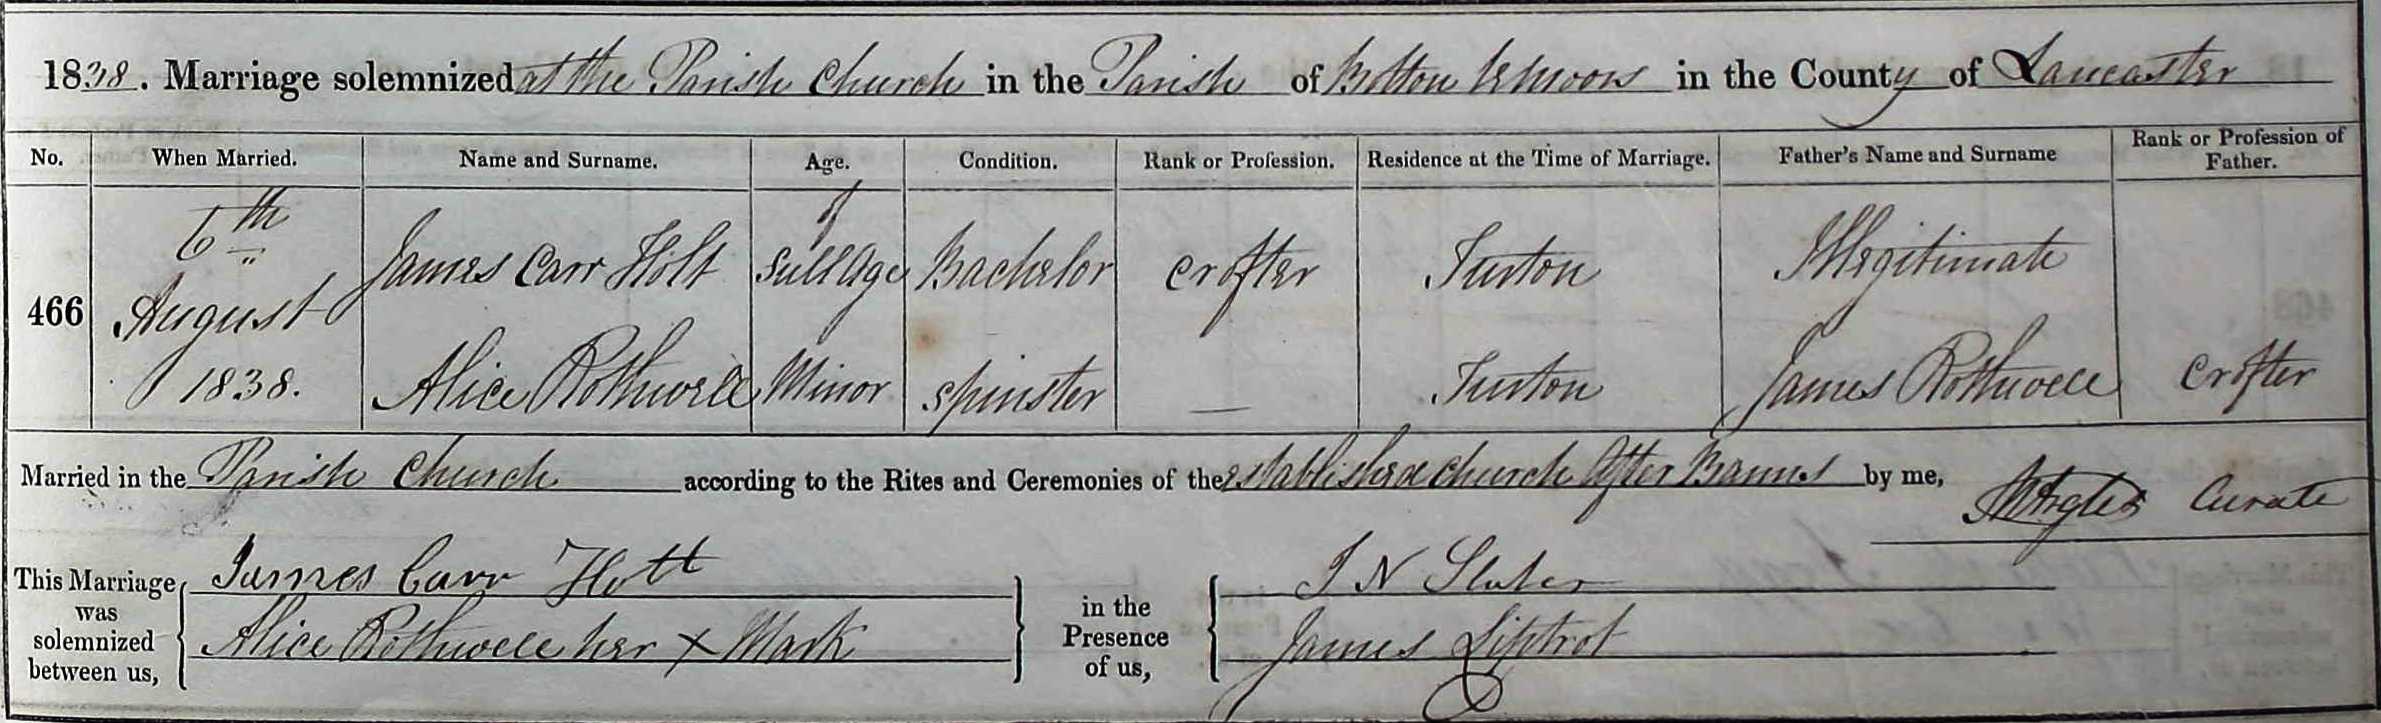 1838. Marriage solemnized at the Parish Church in the Parish of Bolton le Moors in the County of Lancaster
No. When Married. Name and Surname. Age. Condition. Rank or Profession. Residence at the Time of Marriage. Father's Name and Surname Rank or Profession of Father.
466 6th August 1838. James Carr Holt of full age Bachelor Crofter Turton Illegitimate
Alice Rothwell Minor Spinster — Turton James Rothwell Crofter
Married in the Parish Church according to the Rites and Ceremonies of the established Church After Banns by me, Curate
This Marriage was solemnized between us, James Carr Holt in the Presence of us, J N Slater
Alice Rothwell her X Mark James Liptrot